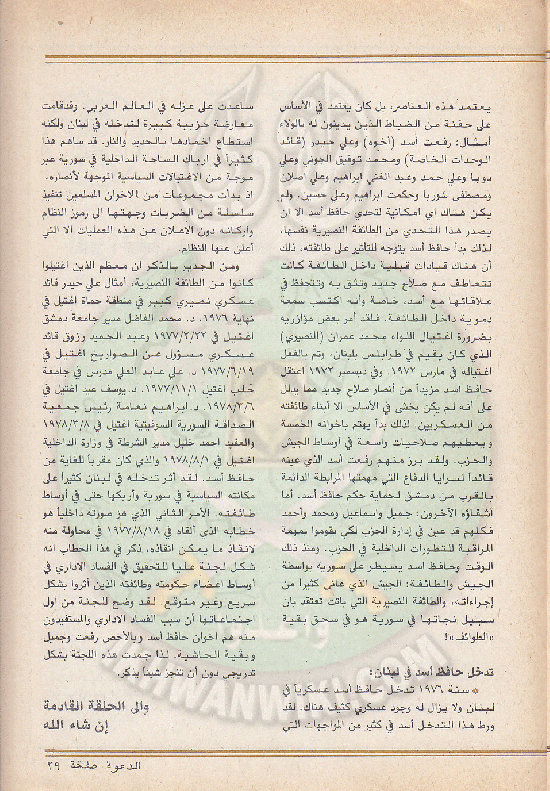 يعتمد هذه العناصر، بل كان يعتمد في الأساس
على حفنة من الضباط الذين يدينون له بالولاء
أمثال: رفعت أسد (أخوه) وعلي حيدر (قائد
الوحدات الخاصة) ومحمد توفيق الجوني وعلي
دوبا وعلي حمد وعبد الغني ابراهيم وعلي اصلان
ومصطفى شوربا وحكمت ابراهيم وعلي حسين. ولم
يكن هناك أي امكانية لتحدي حافظ أسد الا ان
يصدر هذا التحدي من الطائفة النصيرية نفسها،
لذلك بدأ حافظ أسد يتوجه للتأثير على طائفته. ذلك
أن هناك قيادات قبلية داخل الطائفة كانت
تتعاطف مع صلاح جديد وتثق به وتتحفظ في
علاقاتها مع أسد، خاصة وأنه اكتسب سمعة
دموية داخل الطائفة. فلقد أمر بعض مؤازريه
بضرورة اغتيال اللواء محمد عمران (النصيري)
الذي كان يقيم في طرابلس بلبنان. وتم بالفعل
اغتياله في مارس ١٩٧٢. وفي ديسمبر ١٩٧٢ اعتقل
حافظ أسد مزيداً من أنصار صلاح جديد مما يدلل
على أنه لم يكن يخشى في الأساس الا أبناء طائفته
من العسكريين. لذلك بدأ يهتم باخوانه الخمسة
ويعطيهم صلاحيات واسعة في أوساط الجيش
والحزب. ولقد برز منهم رفعت أسد الذي عينه
قائداً لسرايا الدفاع التي مهمتها المرابطة الدائمة
بالقرب من دمشق لحماية حكم حافظ أسد. أما
أشقاؤه الآخرون: جميل واسماعيل ومحمد وأحمد
فكلهم قد عين في إدارة الحزب لكي يقوموا بمهمة
المراقبة للتطورات الداخلية في الحزب. ومنذ ذلك
الوقت وحافظ أسد يسيطر على سورية بواسطة
الجيش والطائفة: الجيش الذي عانى كثيراً من
إجراءاته، والطائفة النصيرية التي باتت تعتقد بان
سبيل نجاتها في سورية هو في سحق بقية
«الطوائف»!
تدخل حافظ أسد في لبنان:
* سنة ١٩٧٦ تدخل حافظ أسد عسكرياً في
لبنان ولا يزال له وجود عسكري كثيف هناك. لقد
ورط هذا التدخل أسد في كثير من المواجهات التي
ساعدت على عزله في العالم العربي. وقد قامت
معارضة حزبية كبيرة لتدخله في لبنان ولكنه
استطاع اخمادها بالحديد والنار. قد ساهم هذا
كثيراً في ارباك الساحة الداخلية في سورية عبر
موجة من الاغتيالات السياسية الموجهة لأنصاره.
اذ بدأت مجموعات من الاخوان المسلمين تنفيذ
سلسلة من الضربات وجهتها الى رموز النظام
وأركانه دون الاعلان عن هذه العمليات الا التي
أعلن عنها النظام.
ومن الجدير بالذكر ان معظم الذين اغتيلوا
كانوا من الطائفة النصيرية، أمثال علي حيدر قائد
عسكري نصيري كبير في منطقة حماة اغتيل في
نهاية ١٩٧٦. د. محمد الفاضل مدير جامعة دمشق
اغتيل في ١٩٧٧/٢/٢٢ وعبد الحميد رزوق قائد
عسكري مسؤول عن الصواريخ اغتيل في
١٩٧٧/٦/١٩. د. علي عابد العلي مدرس في جامعة
حلب اغتيل ١٩٧٧/١١/١. د. يوسف عيد اغتيل في
١٩٧٨/٣/٦. د. ابراهيم نعامة رئيس جمعية
الصداقة السورية السوفيتية اغتيل في ١٩٧٨/٣/٨
والعقيد احمد خليل مدير الشرطة في وزارة الداخلية
اغتيل في ١٩٧٨/٨/١ والذي كان مقرباً للغاية من
حافظ أسد. لقد أثر تدخله في لبنان كثيراً على
مكانته السياسية في سورية وأربكها حتى في أوساط
طائفته. الأمر الثاني الذي هز صورته داخلياً هو
خطابه الذي ألقاه في ١٩٧٧/٨/١٨ في محاولة منه
لانقاذ ما يمكن انقاذه. ذكر في هذا الخطاب انه
شكل لجنة عليا للتحقيق في الفساد الاداري في
أوساط اعضاء حكومته وطائفته الذين أثروا بشكل
سريع وغير متوقع. لقد وضح للجنة من اول
اجتماعاتها أن سبب الفساد الاداري والمستفيدون
منه هم اخوان حافظ أسد وبالأخص رفعت وجميل
وبقية الحاشية. لذا جمدت هذه اللجنة بشكل
تدريجي دون أن تنجز شيئاً يذكر.
والى الحلقة القادمة
إن شاء الله
الدعوة. صفحة ٣٩
IKHWANWIKI.COM